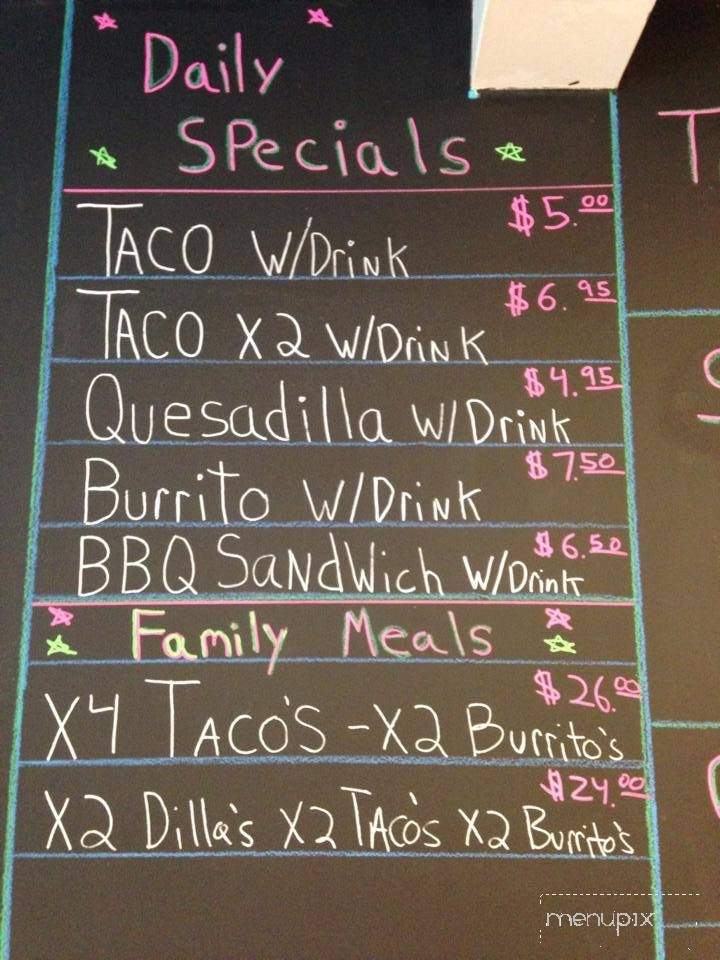 Daily
Specials
$5.00
Taco w/Drink
$6.95
Taco x2 w/Drink
$4.95
Quesadilla w/Drink
$7.50
Burrito w/Drink
$6.50
BBQ Sandwich w/Drink
Family Meals
$26.00
x4 Taco's - x2 Burrito's
$24.00
x2 Dilla's x2 Taco's x2 Burrito's
menupix